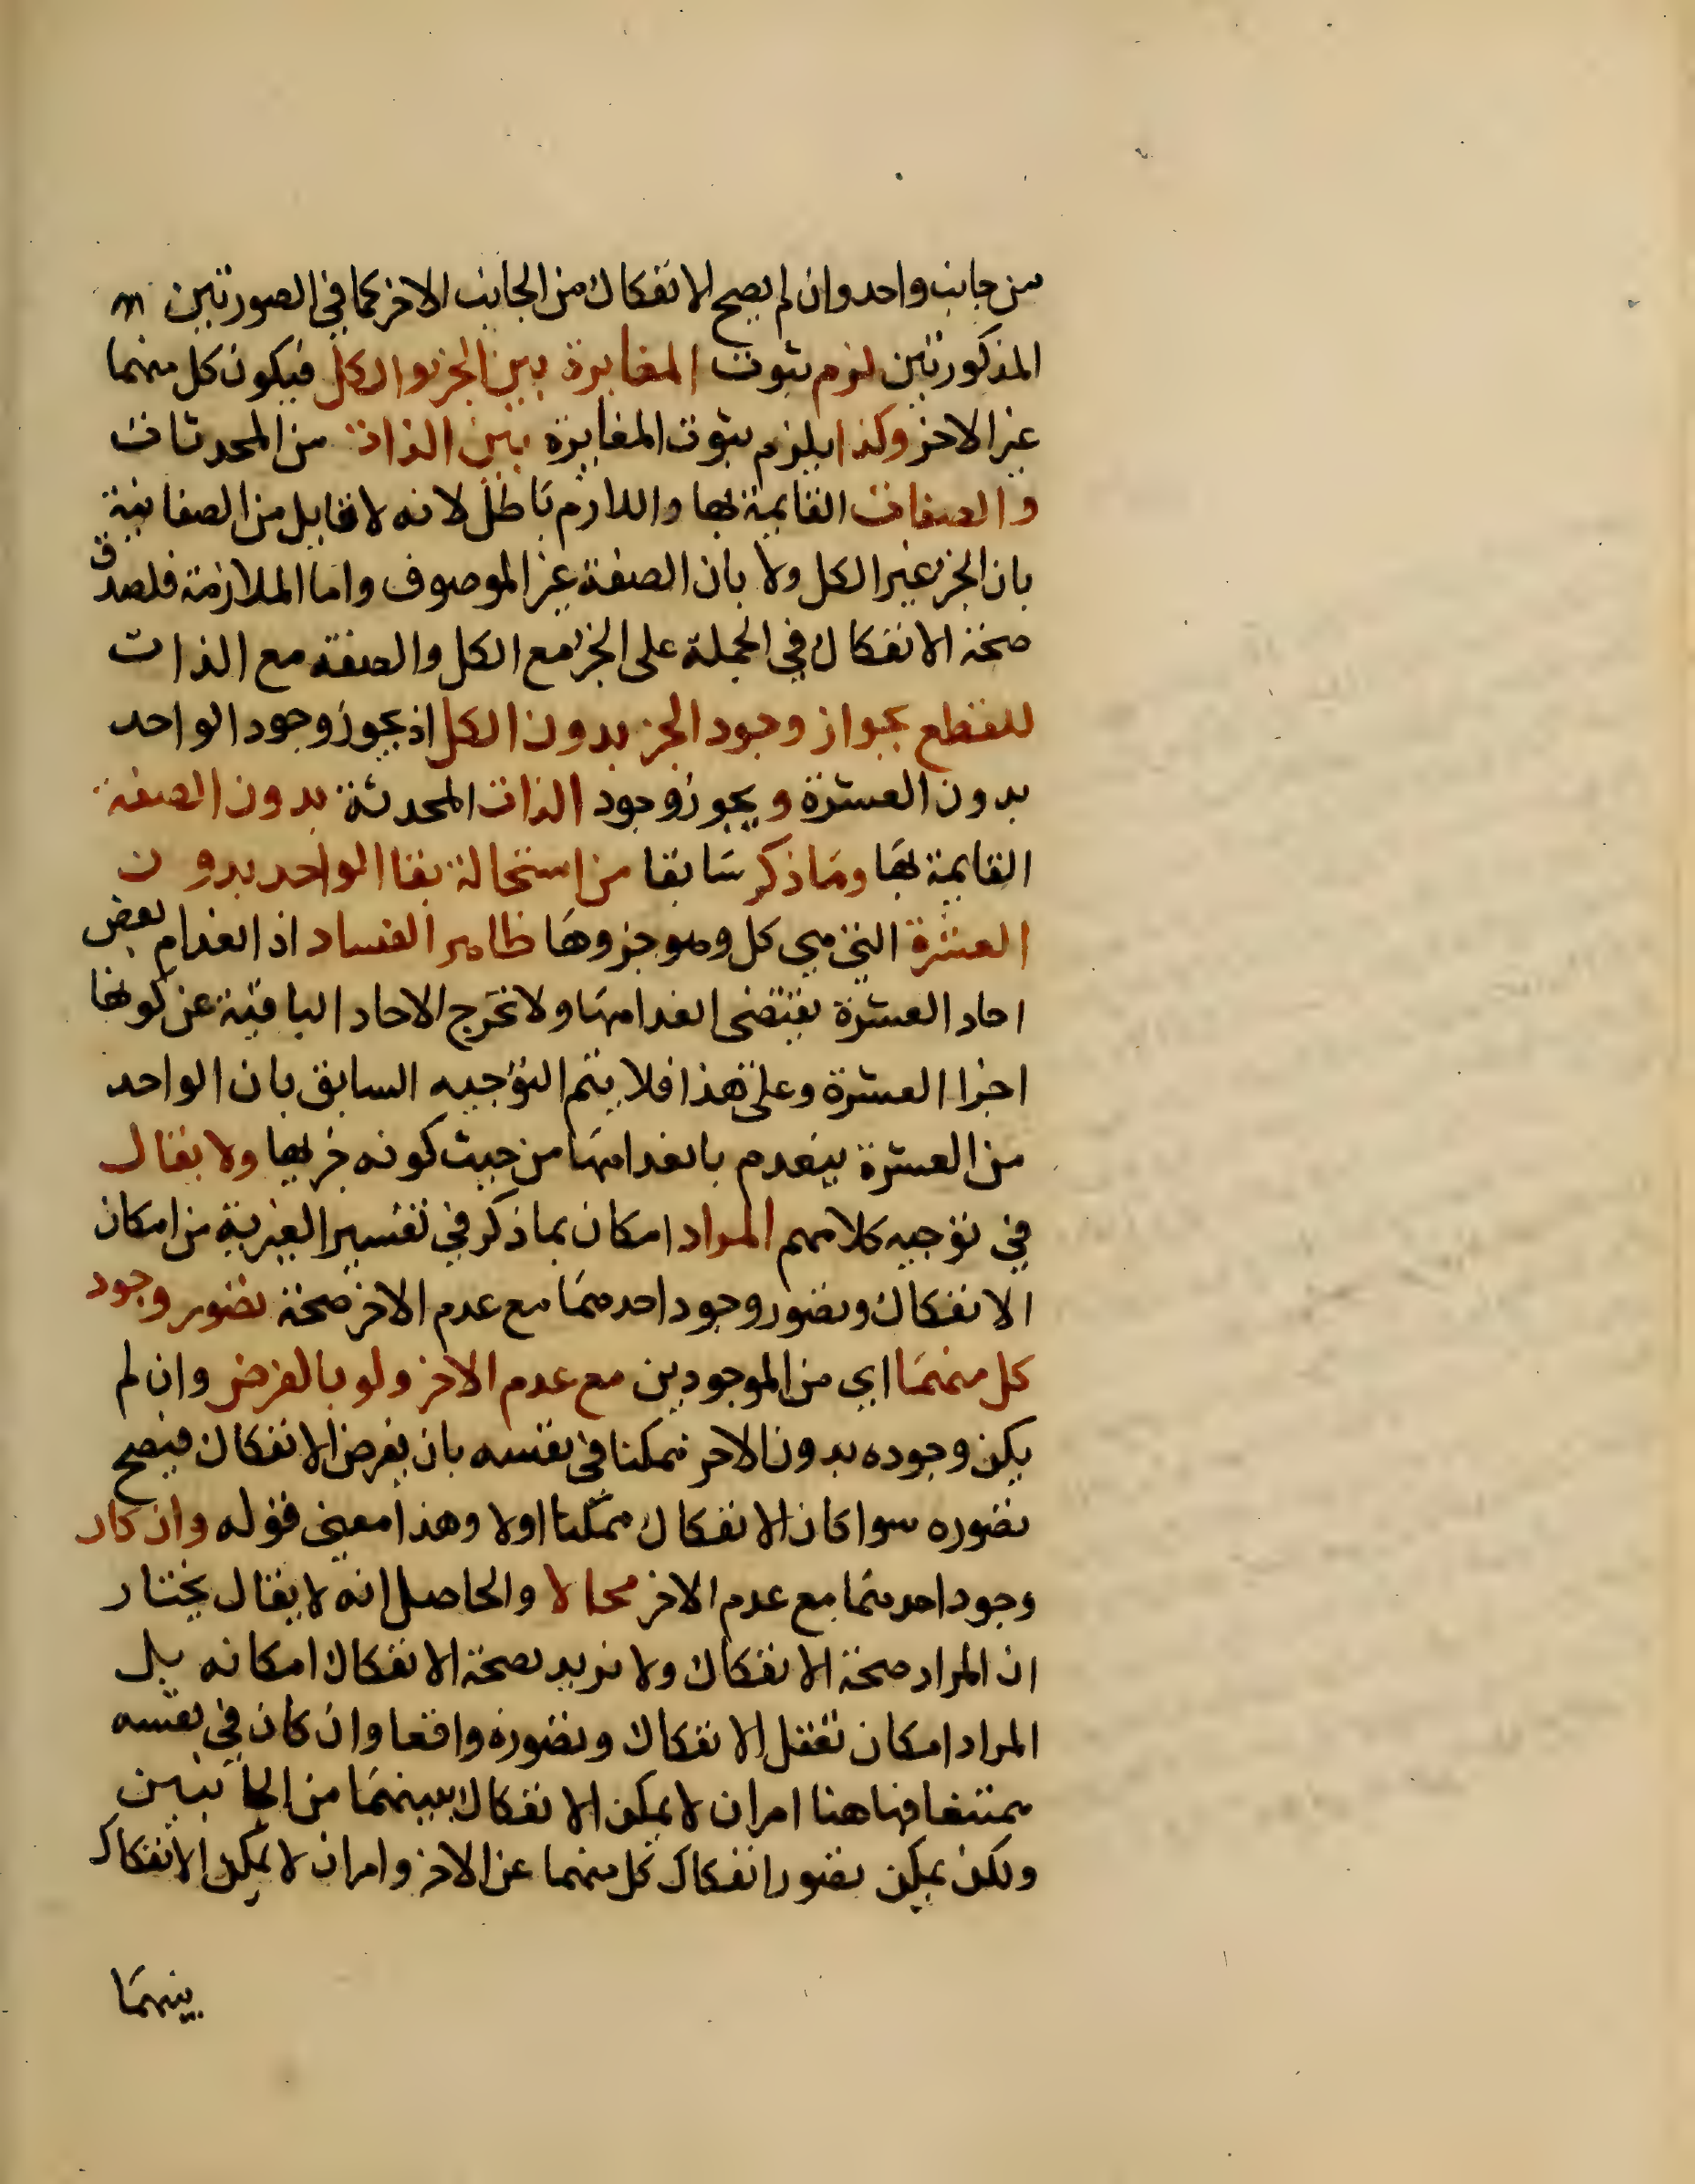 من جانب واحد وان لم يصح الانفكاك من الجانب الاخر كما في الصورتين
المذكورتين لزم ثبوت المغايرة بين الجزء والكل فيكون كل منهما
غير الاخر وكذا يلزم ثبوت المغايرة بين الذات من المحدثات
والصفات القايمة بها واللازم باطل لانه لا قايل من الصفاتية
بان الجزء غير الكل ولا بان الصفة غير الموصوف واما الملازمة فلصدق
صحة الانفكاك في الجملة على الجزء مع الكل والصفة مع الذات
للقطع بجواز وجود الجزء بدون الكل اذ يجوز وجود الواحد
بدون العشرة ويجوز وجود الذات المحدثة بدون الصفة
القايمة بها وما ذكر سابقا من استحالة بقا الواحد بدون
العشرة التي هي كل وهو جزوها ظاهر الفساد اذ انعدام بعض
احاد العشرة يقتضى انعدامها ولا تخرج الاحاد الباقية عن كونها
اجزا العشرة وعلى هذا فلا يتم التوجيه السابق بان الواحد
من العشرة ينعدم بانعدامها من حيث كونه جزءها ولا يقال
في توجيه كلامهم المراد امكان بما ذكر في تفسير الغيرية من امكان
الانفكاك وتصور وجود احدهما مع عدم الاخر صحة تصور وجود
كل منهما اي من الموجودين مع عدم الاخر ولو بالفرض وان لم
يكن وجوده بدون الاخر ممكنا في نفسه بان يفرض الانفكاك فيصح
تصوره سوا كان الانفكاك ممكنا اولا وهذا معنى قوله وان كان
وجود احدهما مع عدم الاخر محالا والحاصل انه لا يقال يختار
ان المراد صحة الانفكاك ولا نريد بصحة الانفكاك امكانه بل
المراد امكان تعقل الانفكاك وتصوره واقعا وان كان في نفسه
ممتنعا فهاهنا امران لا يمكن الانفكاك بينهما من الجانبين
ولكن يمكن تصور انفكاك كل منهما عن الاخر وامران لا يمكن الانفكاك
بينهما